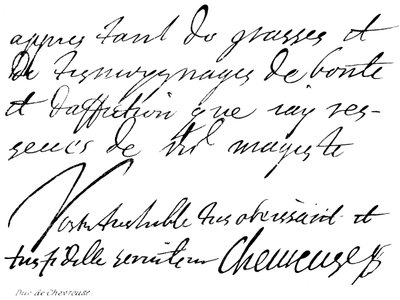 appres tant de grasses et
de tesmoygnages de bonte
et daffection que iay res-
seues de vre mageste
Vostre tres humble tres obeissant et
tres fidelle serviteur Chevreuse
Duc de Chevreuse.